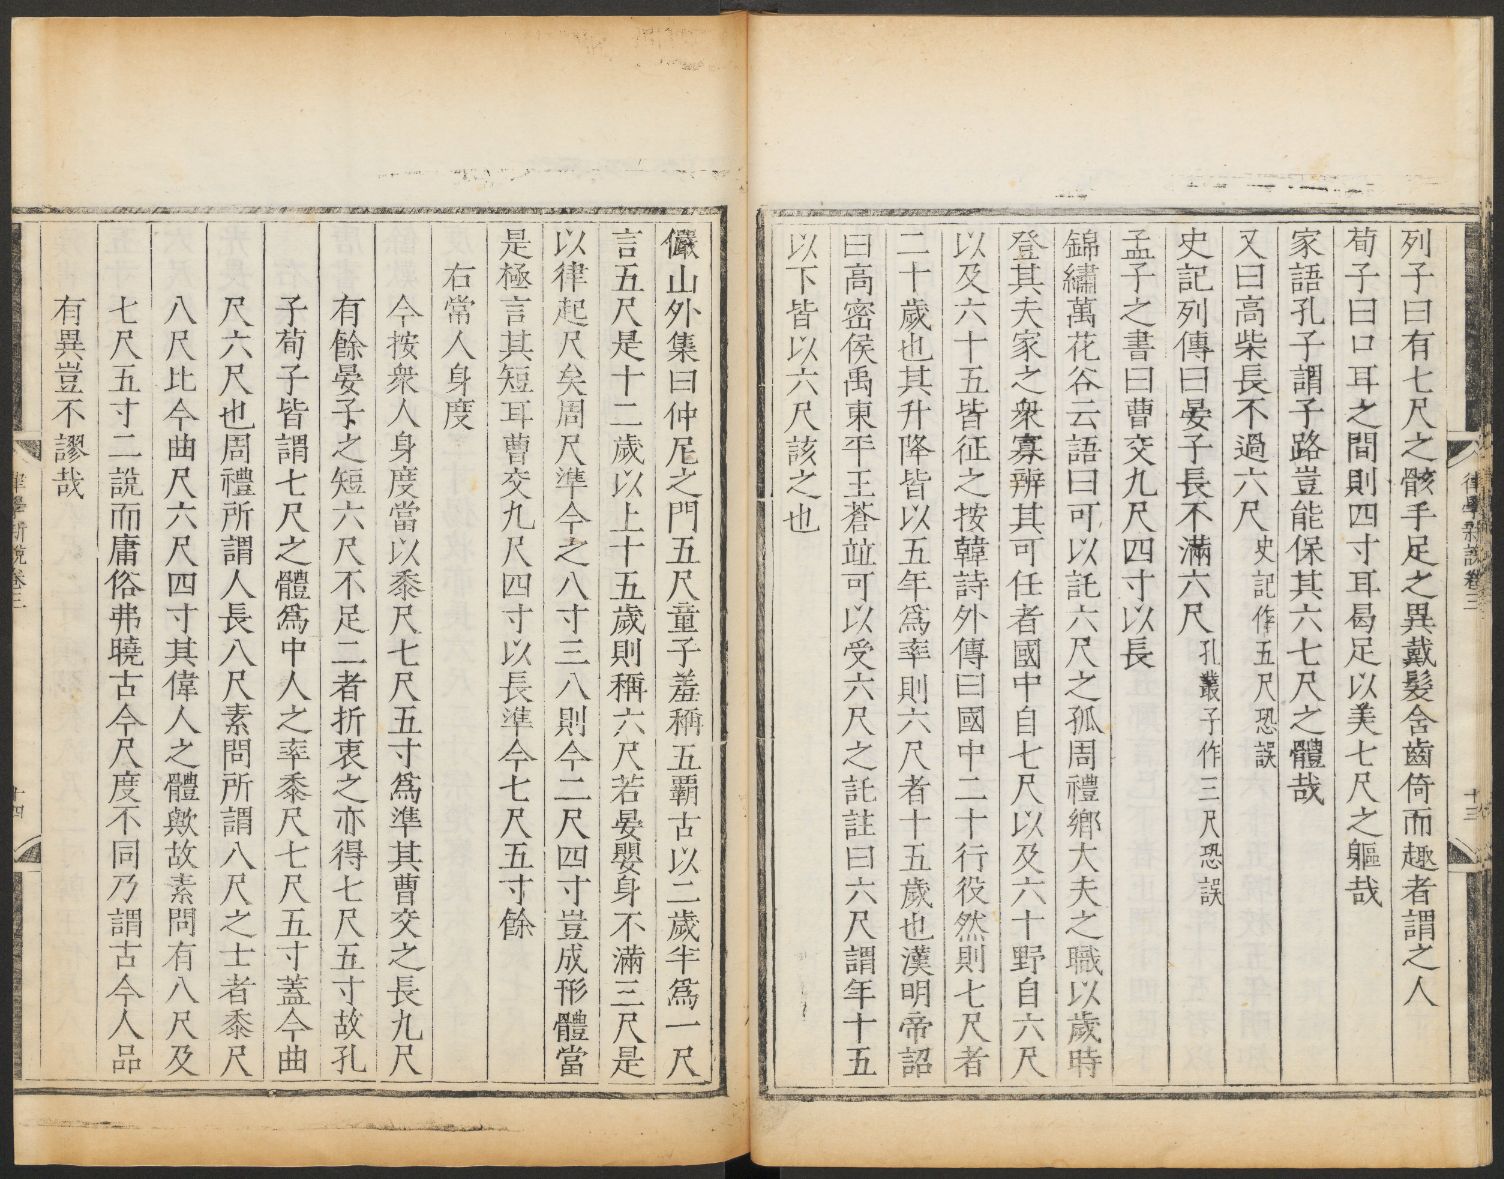 律學新說卷三
十三
列子曰有七尺之骸手足之異戴髮含齒倚而趣者謂之人
荀子曰口耳之間則四寸耳曷足以美七尺之軀哉
家語孔子謂子路豈能保其六七尺之體哉
又曰高柴長不過六尺史記作五尺恐誤
史記列傳曰晏子長不滿六尺孔叢子作三尺恐誤
孟子之書曰曹交九尺四寸以長
錦繡萬花谷云語曰可以託六尺之孤周禮鄉大夫之職以歲時
登其夫家之衆寡辨其可任者國中自七尺以及六十野自六尺
以及六十五皆征之按韓詩外傳曰國中二十行役然則七尺者
二十歲也其升降皆以五年爲率則六尺者十五歲也漢明帝詔
曰高密侯禹東平王蒼竝可以受六尺之託註曰六尺謂年十五
以下皆以六尺該之也
儼山外集曰仲尼之門五尺童子羞稱五霸古以二歲半爲一尺
言五尺是十二歲以上十五歲則稱六尺若晏嬰身不滿三尺是
以律起尺矣周尺準今之八寸三八則今二尺四寸豈成形體當
是極言其短耳曹交九尺四寸以長準今七尺五寸餘
右常人身度
今按衆人身度當以黍尺七尺五寸爲準其曹交之長九尺
有餘晏子之短六尺不足二者折衷之亦得七尺五寸故孔
子荀子皆謂七尺之體爲中人之率黍尺七尺五寸蓋今曲
尺六尺也周禮所謂人長八尺素問所謂八尺之士者黍尺
八尺比今曲尺六尺四寸其偉人之體歟故素問有八尺及
七尺五寸二說而庸俗弗曉古今尺度不同乃謂古今人品
有異豈不謬哉
律學新說卷三
十四